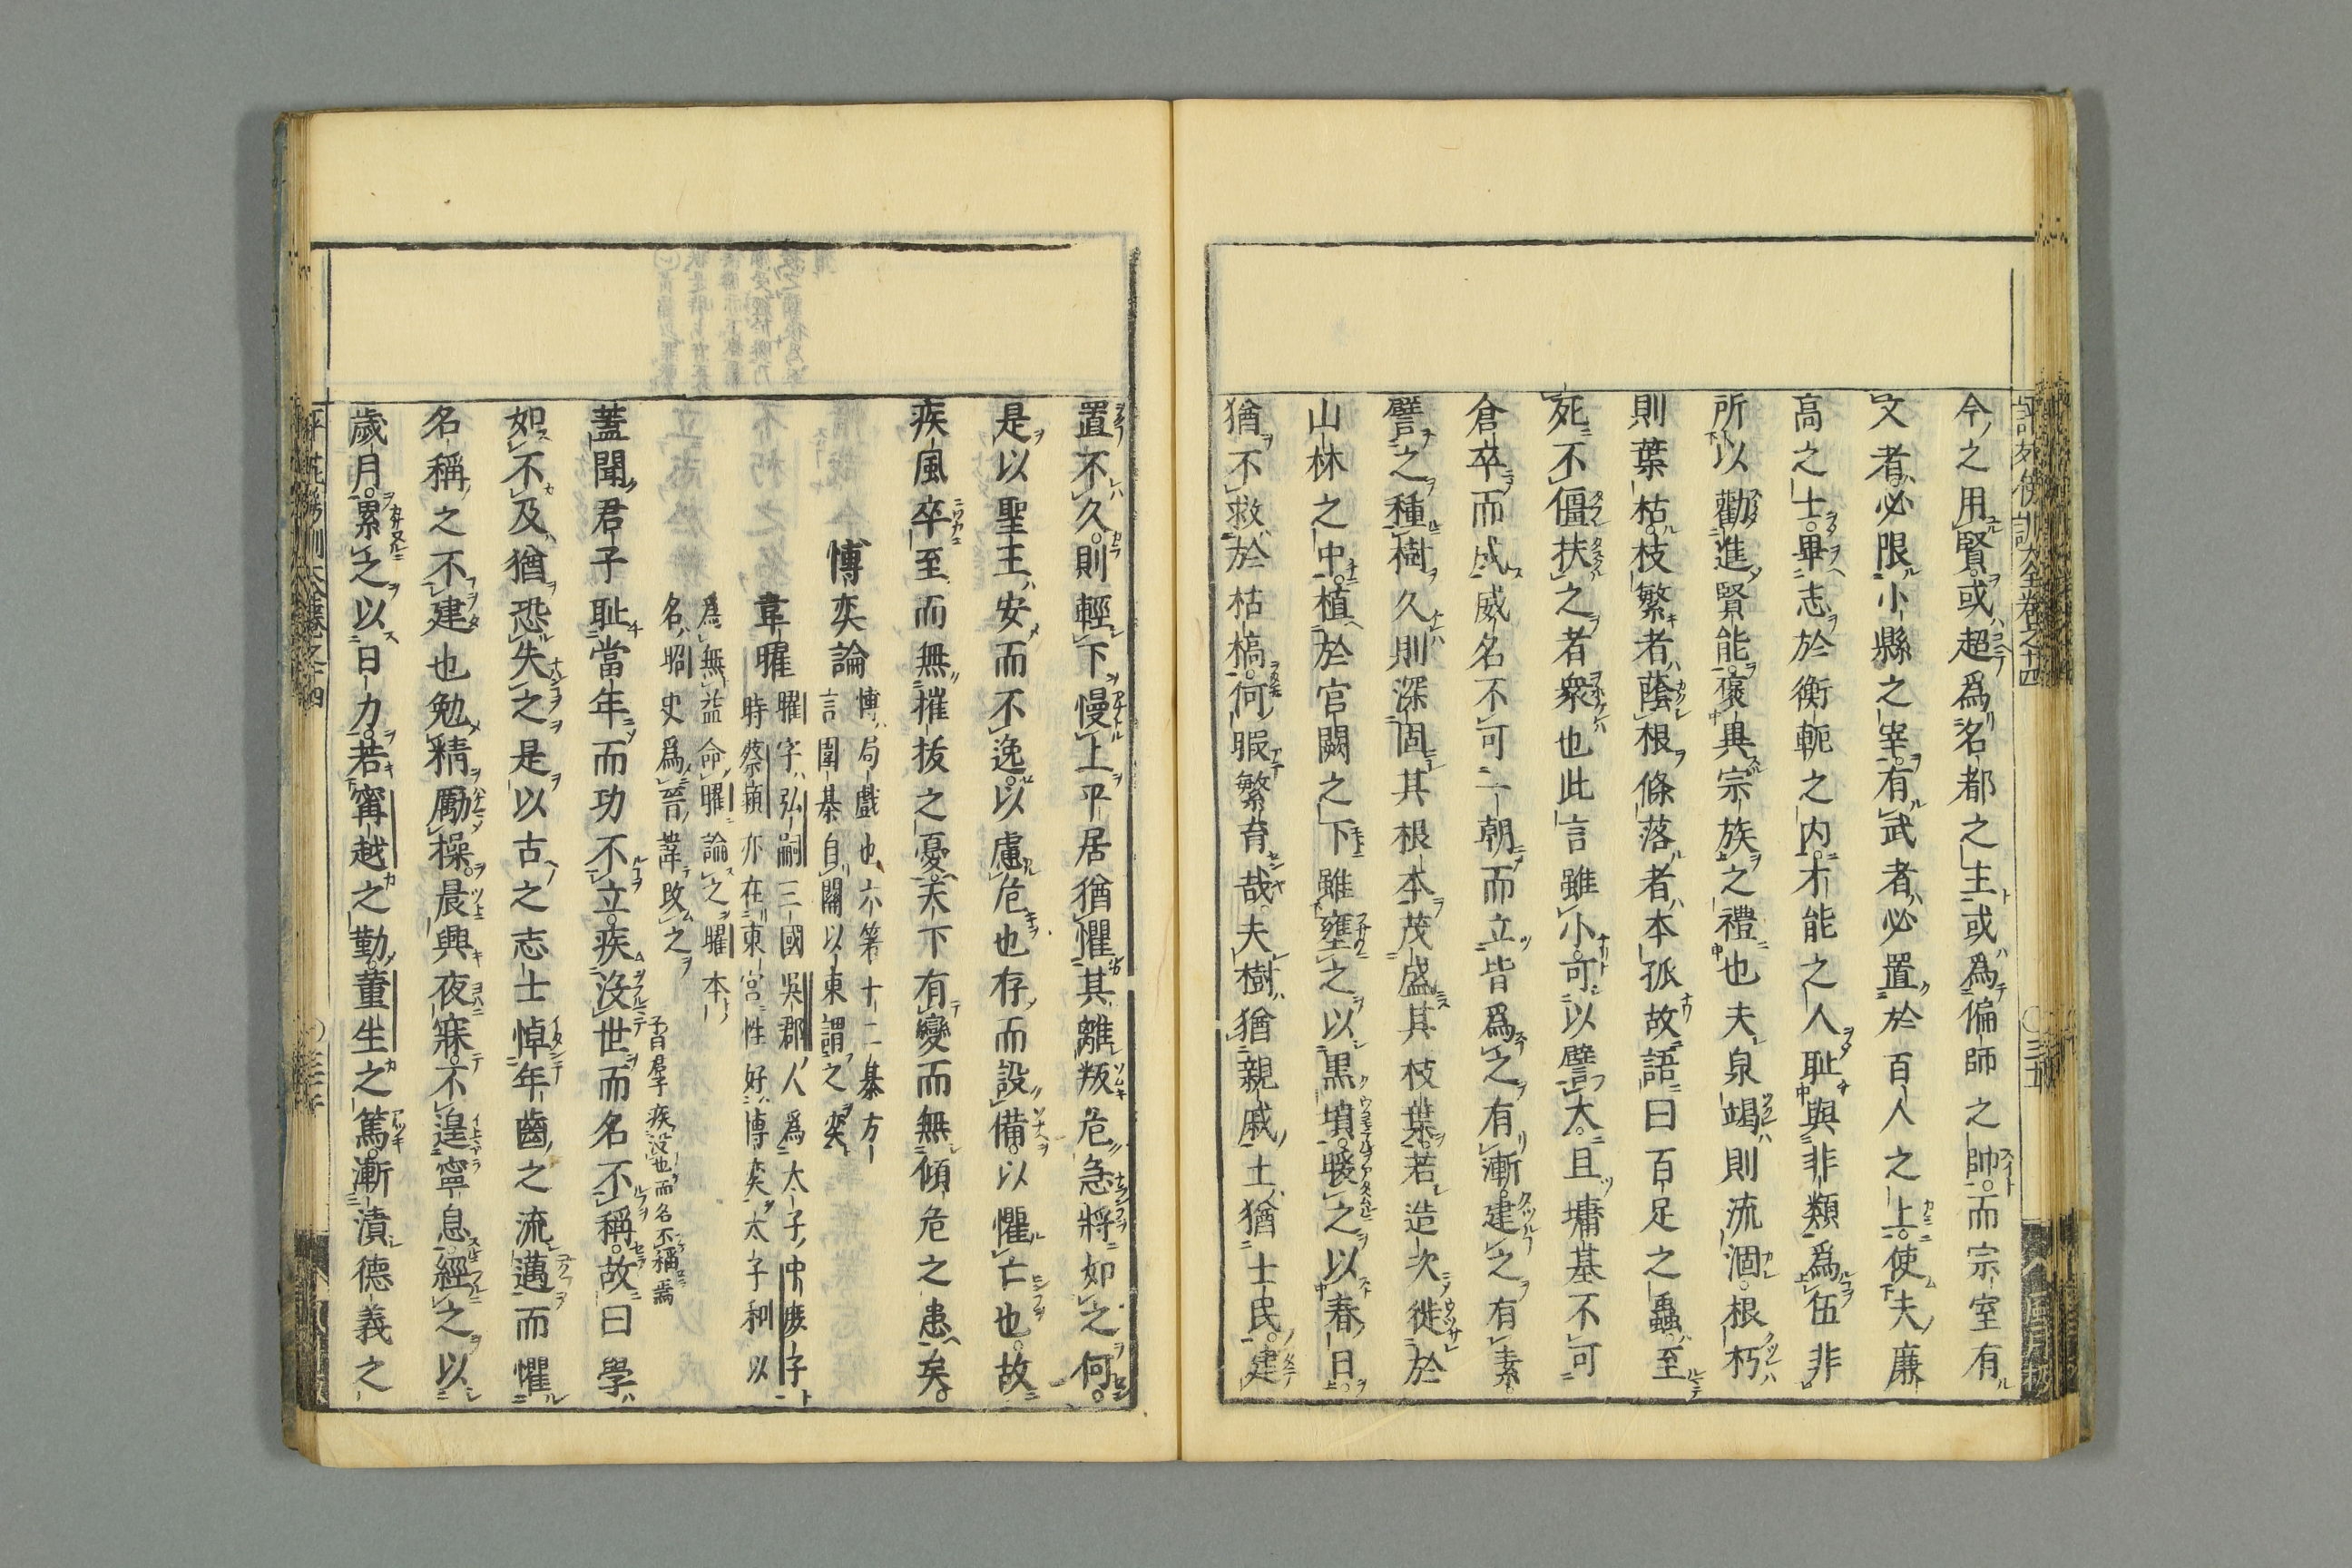 今之用賢或超爲名都之主或爲偏師之帥而宗室有
文者必限小縣之宰有武者必置於百人之上使夫廉
高之士畢志於衡軛之内才能之人恥與非類爲伍非
所以勸進賢能褒異宗族之禮也夫泉竭則流涸根朽
則葉枯枝繁者蔭根條落者本孤故語曰百足之蟲至
死不僵扶之者衆也此言雖小可以譬大且墉基不可
倉卒而成威名不可一朝而立皆爲之有漸建之有素
譬之種樹久則深固其根本茂盛其枝葉若造次徙於
山林之中植於宮闕之下雖壅之以黒墳暖之以春日
猶不救於枯槁何暇繁育哉夫樹猶親戚土猶士民建
置不久則輕下慢上平居猶懼其離叛危急將如之何
是以聖王安而不逸以慮危也存而設備以懼亡也故
疾風卒至而無摧拔之憂天下有變而無傾危之患矣
博奕論
博局戲也六箸十二棊方
言圍棊自關以東謂之奕
韋曜
曜字弘嗣三國吳郡人爲太子中庶子
時蔡頴亦在東宮性好博奕太子和以
爲無益命曜論之曜本
名昭史爲晉諱改之
蓋聞君子恥當年而功不立疾没世而名不稱故曰學
如不及猶恐失之是以古之志士悼年齒之流邁而懼
名稱之不建也勉精厲操晨興夜寐不遑寧息經之以
歲月累之以日力若甯越之勤董生之篤漸漬德義之